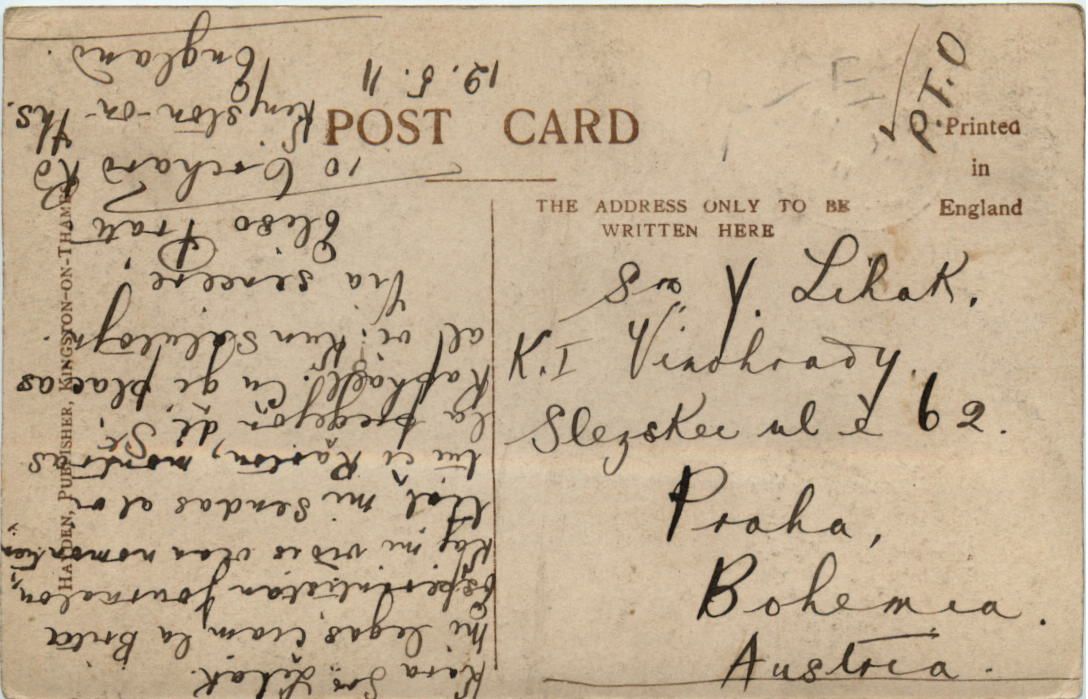 POST CARD
P.T.O
Printed
in
England
THE ADDRESS ONLY TO BE
WRITTEN HERE
Sro Y. Lihak.
K.I Vinohrady.
Slezskei ul è 62.
Praha,
Bohemia.
Austria.
Kara Sro Lihak.
Mi legas, ciam, la Brita
Esperantistan Journalon,
Kaj mi vidis vian nomon
tial mi sendas al vi
tiu ĉi Karton, montras
la preĝejon, de St.
Raphael. Ĉu ĝi plaĉas
al vi. Kun Salutojn.
Via sincere,
Pratt
10 Orchard Rd
Kingston-on-Ths.
England.
12.5.11
PUBLISHER, KINGSTON-ON-THAMES